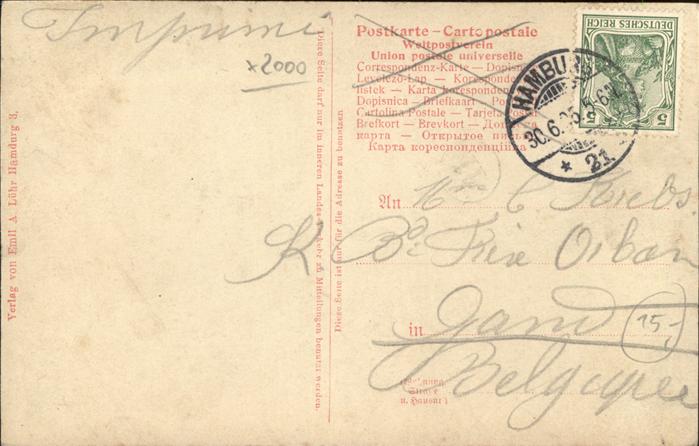 Imprimé
x2000
Postkarte — Carto postale
Weltpostverein
Union postale universelle
Correspondenz-Karte — Dopisnice
Levelező-Lap — Korespondenční
listek — Karta korespondencyjna
Dopisnica — Briefkaart — Post
Cartolina Postale — Tarjeta Postal
Brefkort — Brevkort — Дописна
карта — Открытое письмо
Карта кореспонденційна
DEUTSCHES REICH
5
5
HAMBURG
30.6.05. 5-6N.
* 21.
An Mme C Krebs
Bd. Frère Orban
in Gand
Belgique
15,-
Wohnung
Straße
u. Hausnr.
Diese Seite darf nur im inneren Landes-Verkehr zu Mitteilungen benutzt werden.
Diese Seite ist nur für die Adresse zu benutzen
Verlag von Emil A. Lühr Hamburg 3.